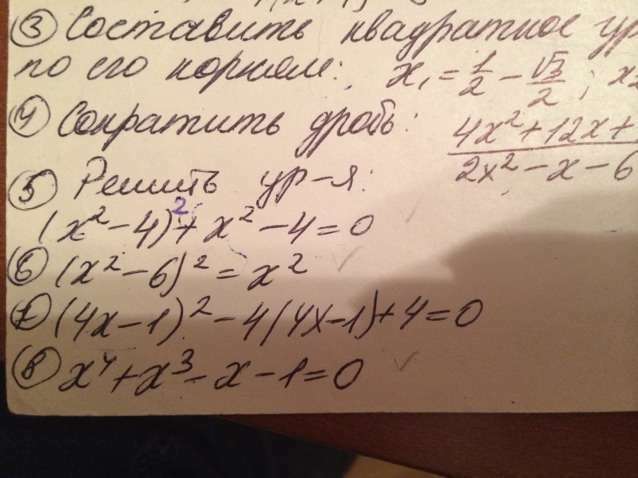 ③ Составить квадратное ур
по его корням: x₁ = 1/2 - √3/2 ; x₂
④ Сократить дробь: (4x² + 12x +)/(2x² - x - 6)
⑤ Решить ур-я:
(x² - 4)² + x² - 4 = 0
⑥ (x² - 6)² = x²
⑦ (4x - 1)² - 4(4x - 1) + 4 = 0
⑧ x⁴ + x³ - x - 1 = 0